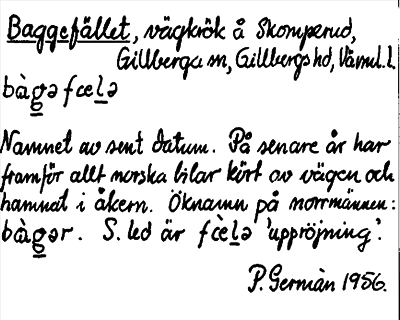 Baggefället, vägkrök å Skomperud,
Gillberga sn, Gillbergs hd, Värml. l.
bàgə fœlə
Namnet av sent datum. På senare år har
framför allt norska bilar kört av vägen och
hamnat i åkern. Öknamn på norrmännen:
bàgər. S. led är fœ̀lə 'uppröjning'.
P. Germän 1956.